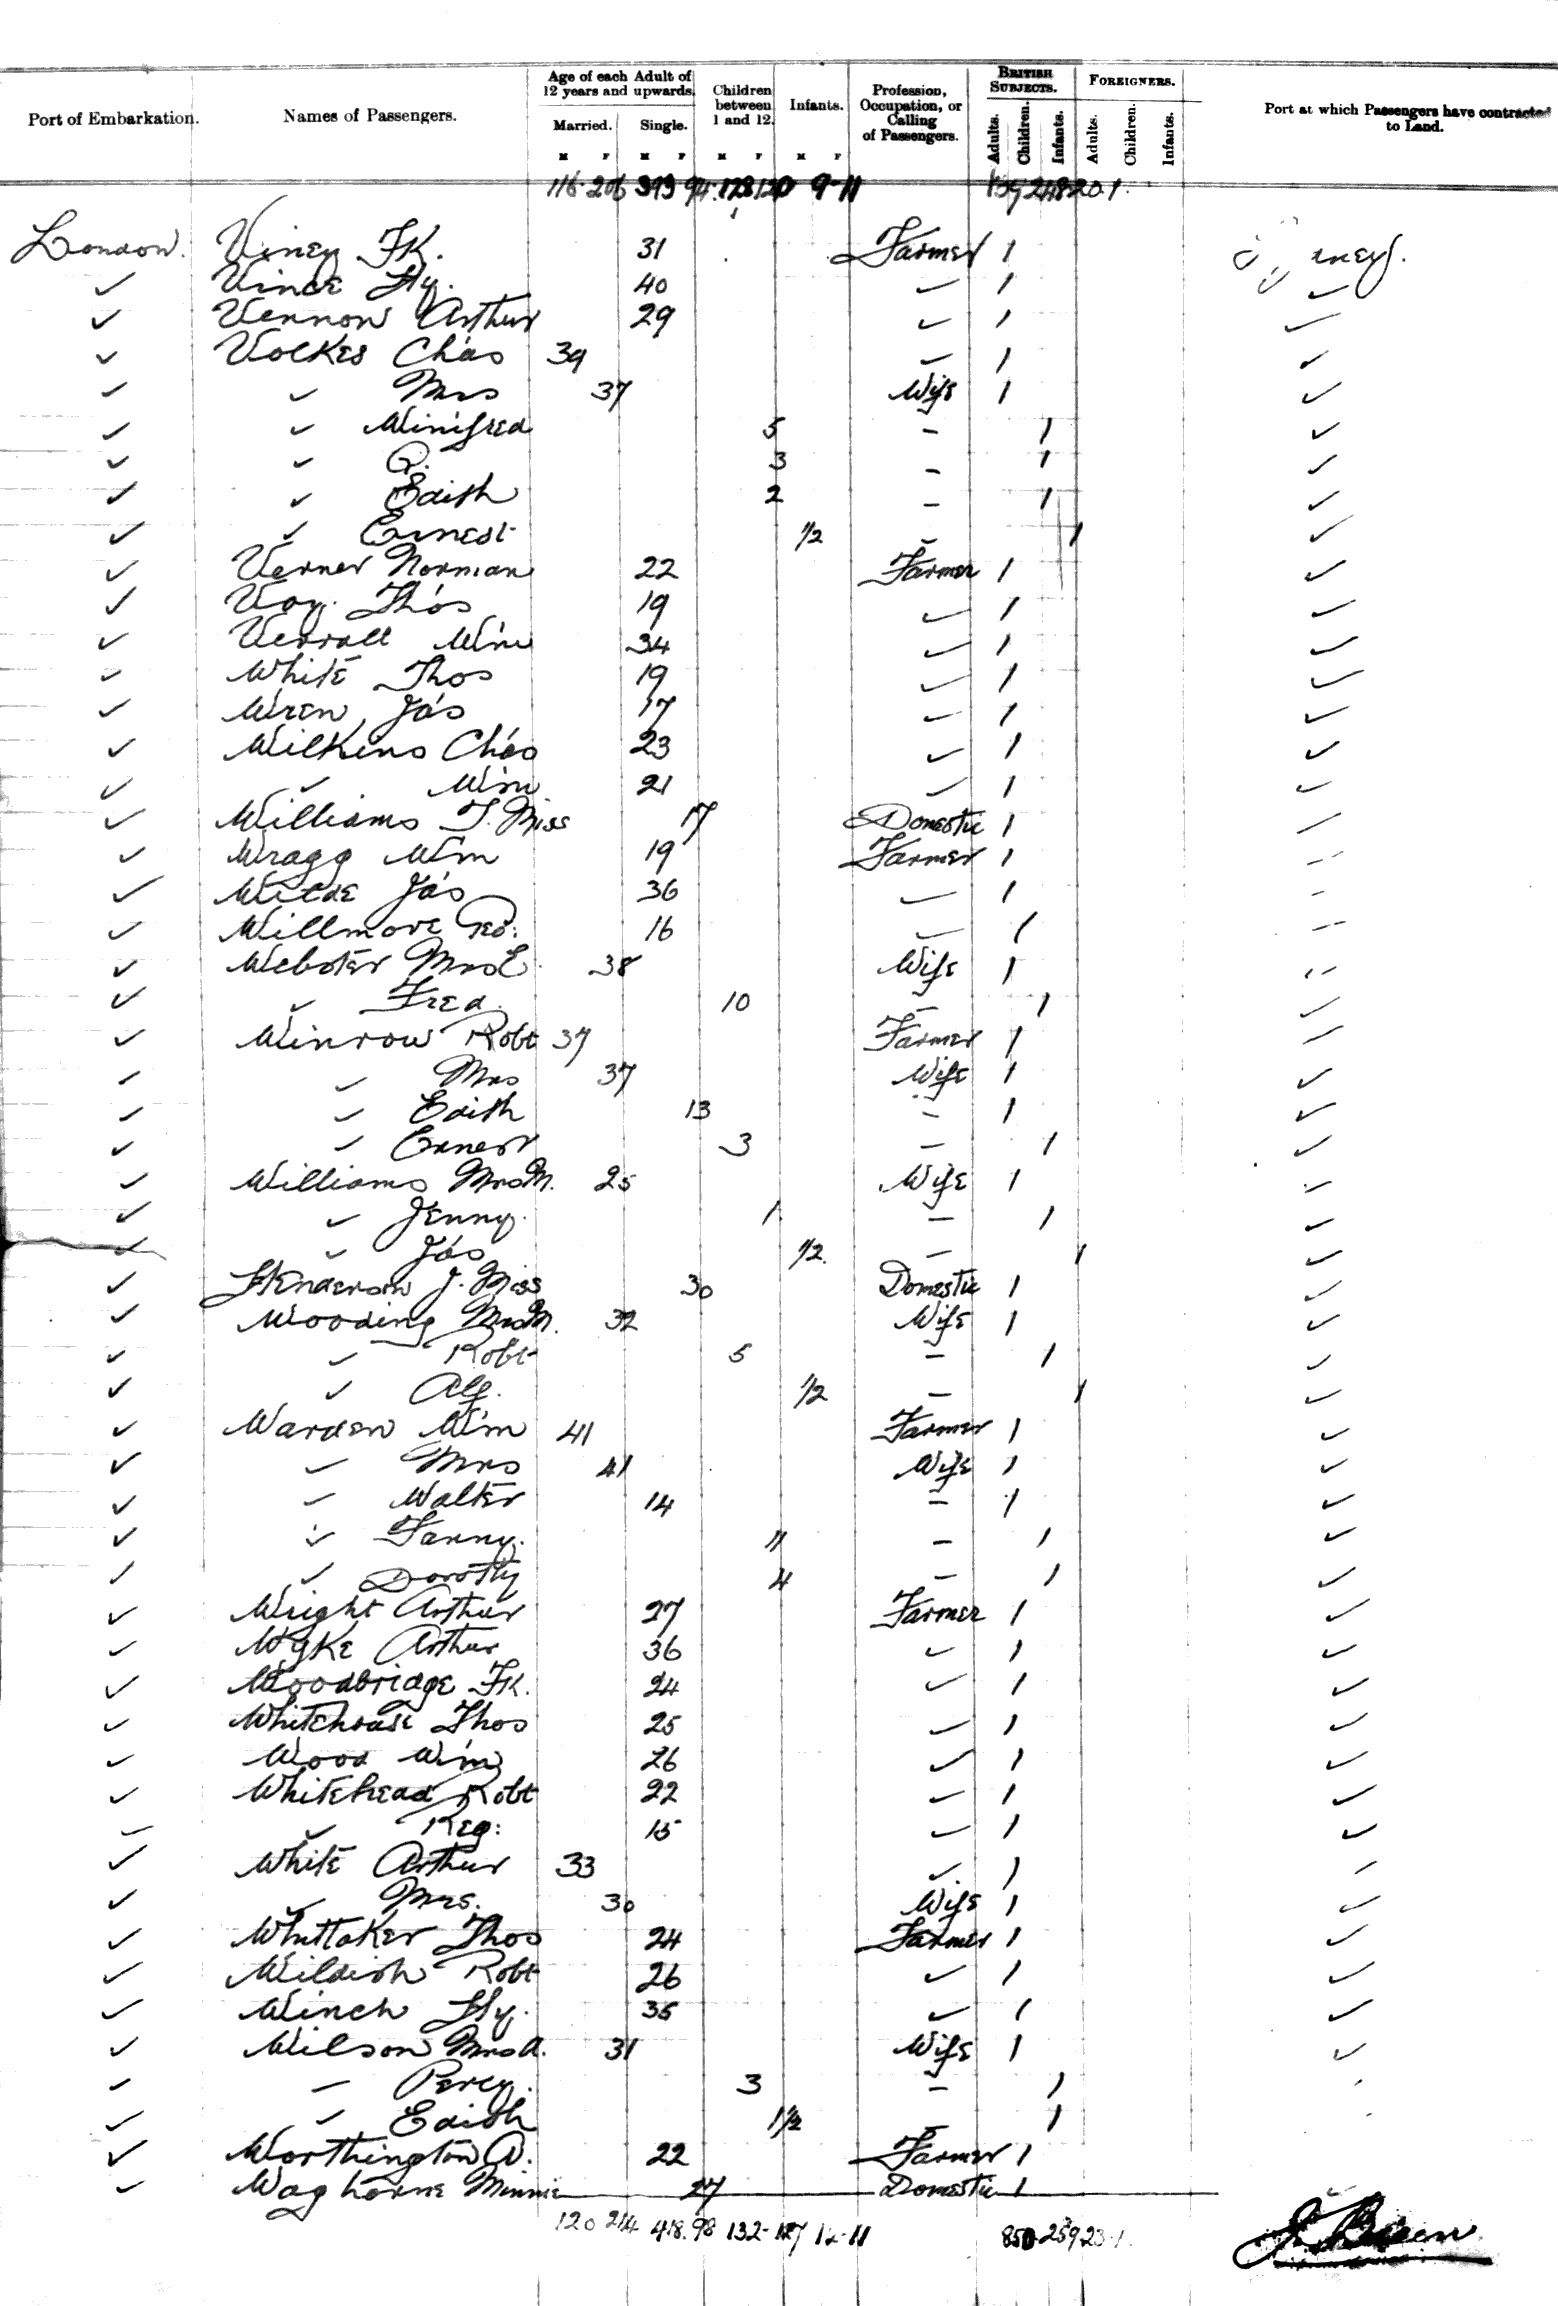 Port of Embarkation. Names of Passengers. Age of each Adult of 12 years and upwards. Married. Single. M F M F Children between 1 and 12. M F Infants. M F Profession, Occupation, or Calling of Passengers. British Subjects. Adults. Children. Infants. Foreigners. Adults. Children. Infants. Port at which Passengers have contracted to Land.
116 206 393 94 128 120 9-11 248 20 1
London Viney Fk. 31 Farmer 1
✓ Vince Hy. 40 ✓ 1 ✓
✓ Vernon Arthur 29 ✓ 1 ✓
✓ Volkes Chas 39 ✓ 1 ✓
✓ ✓ Mrs 37 Wife 1 ✓
✓ ✓ Winifred 5 - 1 ✓
✓ ✓ 3 - 1 ✓
✓ ✓ Edith 2 - 1 ✓
✓ ✓ Ernest 1/2 - 1 ✓
✓ Verner Norman 22 Farmer 1 ✓
✓ Voy. Thos 19 ✓ 1 ✓
✓ Verrall Wm 34 ✓ 1 ✓
✓ White Thos 19 ✓ 1 ✓
✓ Wren Jas 17 ✓ 1 ✓
✓ Wilkins Chas 23 ✓ 1 ✓
✓ ✓ Wm 21 ✓ 1 ✓
✓ Williams T. Miss 17 Domestic 1 ✓
✓ Wragg Wm 19 Farmer 1 ✓
✓ Wilde Jas 36 ✓ 1 ✓
✓ Willmore Geo: 16 ✓ 1 ✓
✓ Webster Mrs E. 38 Wife 1 ✓
✓ ✓ Fred. 10 - 1 ✓
✓ Winrow Robt 37 Farmer 1 ✓
✓ ✓ Mrs 37 Wife 1 ✓
✓ ✓ Edith 13 - 1 ✓
✓ ✓ Ernest 3 - 1 ✓
✓ Williams Mrs M. 25 Wife 1 ✓
✓ ✓ Jenny. 1 - 1 ✓
✓ ✓ Jas 1/2 - 1 ✓
✓ Henderson J. Miss 30 Domestic 1 ✓
✓ Wooding Mrs M. 32 Wife 1 ✓
✓ ✓ Robt 5 - 1 ✓
✓ ✓ Alf. 1/2 - 1 ✓
✓ Warden Wm 41 Farmer 1 ✓
✓ ✓ Mrs 41 Wife 1 ✓
✓ ✓ Walter 14 - 1 ✓
✓ ✓ Fanny. 11 - 1 ✓
✓ ✓ Dorothy 4 - 1 ✓
✓ Wright Arthur 27 Farmer 1 ✓
✓ Wyke Arthur 36 ✓ 1 ✓
✓ Woodbridge Fk. 24 ✓ 1 ✓
✓ Whitehouse Thos 25 ✓ 1 ✓
✓ Wood Wm 26 ✓ 1 ✓
✓ Whitehead Robt 22 ✓ 1 ✓
✓ ✓ Reg: 15 ✓ 1 ✓
✓ White Arthur 33 ✓ 1 ✓
✓ ✓ Mrs. 30 Wife 1 ✓
✓ Whittaker Thos 24 Farmer 1 ✓
✓ Wildish Robt 26 ✓ 1 ✓
✓ Winch Hy. 35 ✓ 1 ✓
✓ Wilson Mrs A. 31 Wife 1 ✓
✓ ✓ Percy. 3 - 1
✓ ✓ Edith 1 1/2 1
✓ Worthington A. 22 Farmer 1
✓ Waghorne Minnie 27 Domestic 1
120 214 418. 98 132- 127 12-11 850 259 23 1